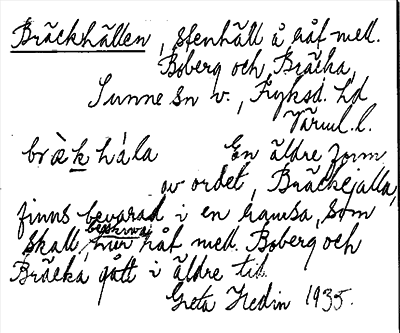 Bräckhällen, stenhäll å råf mell.
Boberg och Bräcka,
Sunne sn v., Fryksd. hd
Värml. l.
bràkhála En äldre form
av ordet, Bräckejalla,
finns bevarad i en ramsa, som
skall beskriva hur råf mell. Boberg och
Bräcka gått i äldre tid.
Greta Hedin 1935.